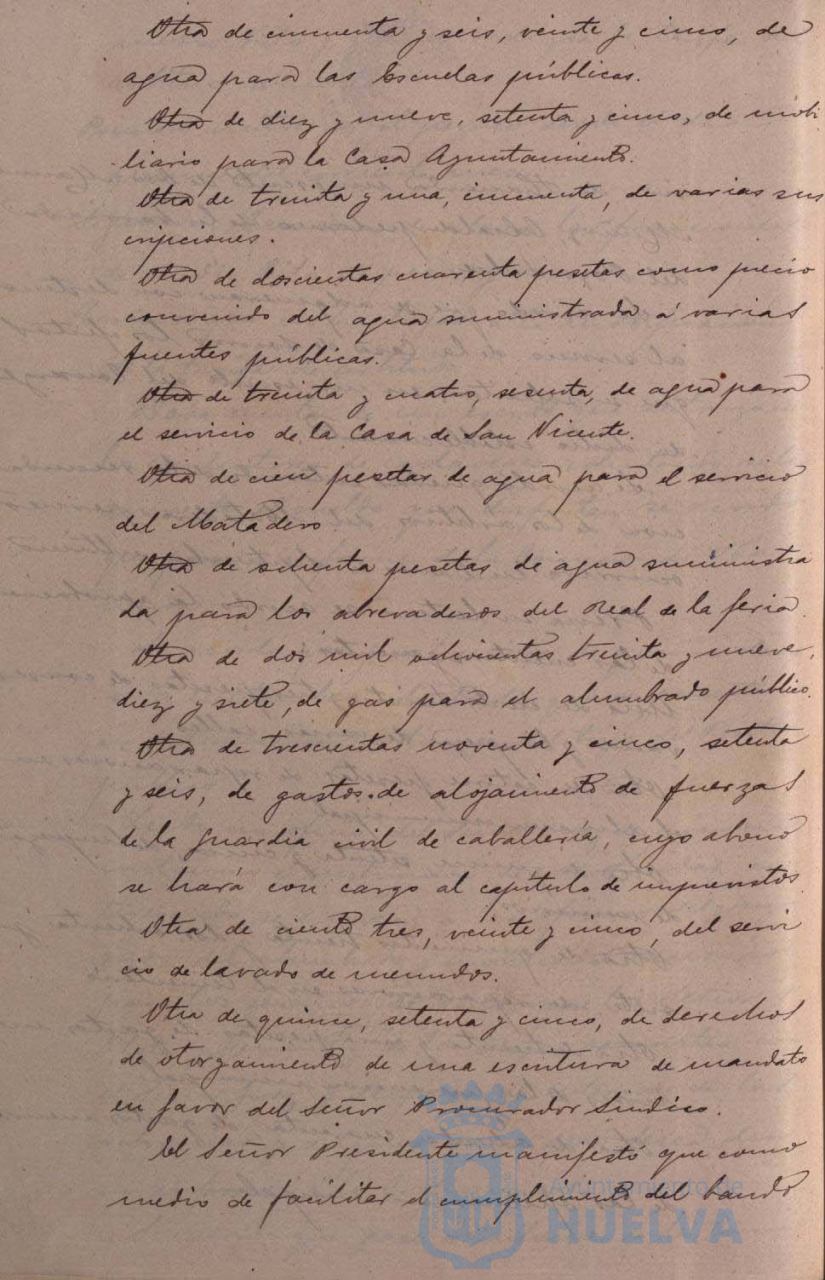 Otra de cincuenta y seis, veinte y cinco, de
agua para las Escuelas públicas.
Otra de diez y nueve, setenta y cinco, de mobi
liario para la Casa Ayuntamiento.
Otra de treinta y una, cincuenta, de varias sus
cripciones.
Otra de doscientas cuarenta pesetas como precio
convenido del agua suministrada á varias
fuentes públicas.
Otra de treinta y cuatro, sesenta, de agua para
el servicio de la Casa de San Vicente.
Otra de cien pesetas de agua para el servicio
del Matadero
Otra de setenta pesetas de agua suministra
da para los abrevaderos del Real de la feria.
Otra de dos mil ochocientas treinta y nueve,
diez y siete, de gas para el alumbrado público.
Otra de trescientas noventa y cinco, setenta
y seis, de gastos de alojamiento de fuerzas
de la guardia civil de caballería, cuyo abono
se hará con cargo al capítulo de imprevistos.
Otra de ciento tres, veinte y cinco, del servi
cio de lavado de menudos.
Otra de quince, setenta y cinco, de derechos
de otorgamiento de una escritura de mandato
en favor del Señor Procurador Síndico.
El Señor Presidente manifestó que como
medio de facilitar el cumplimiento del bando
Ayuntamiento de
HUELVA